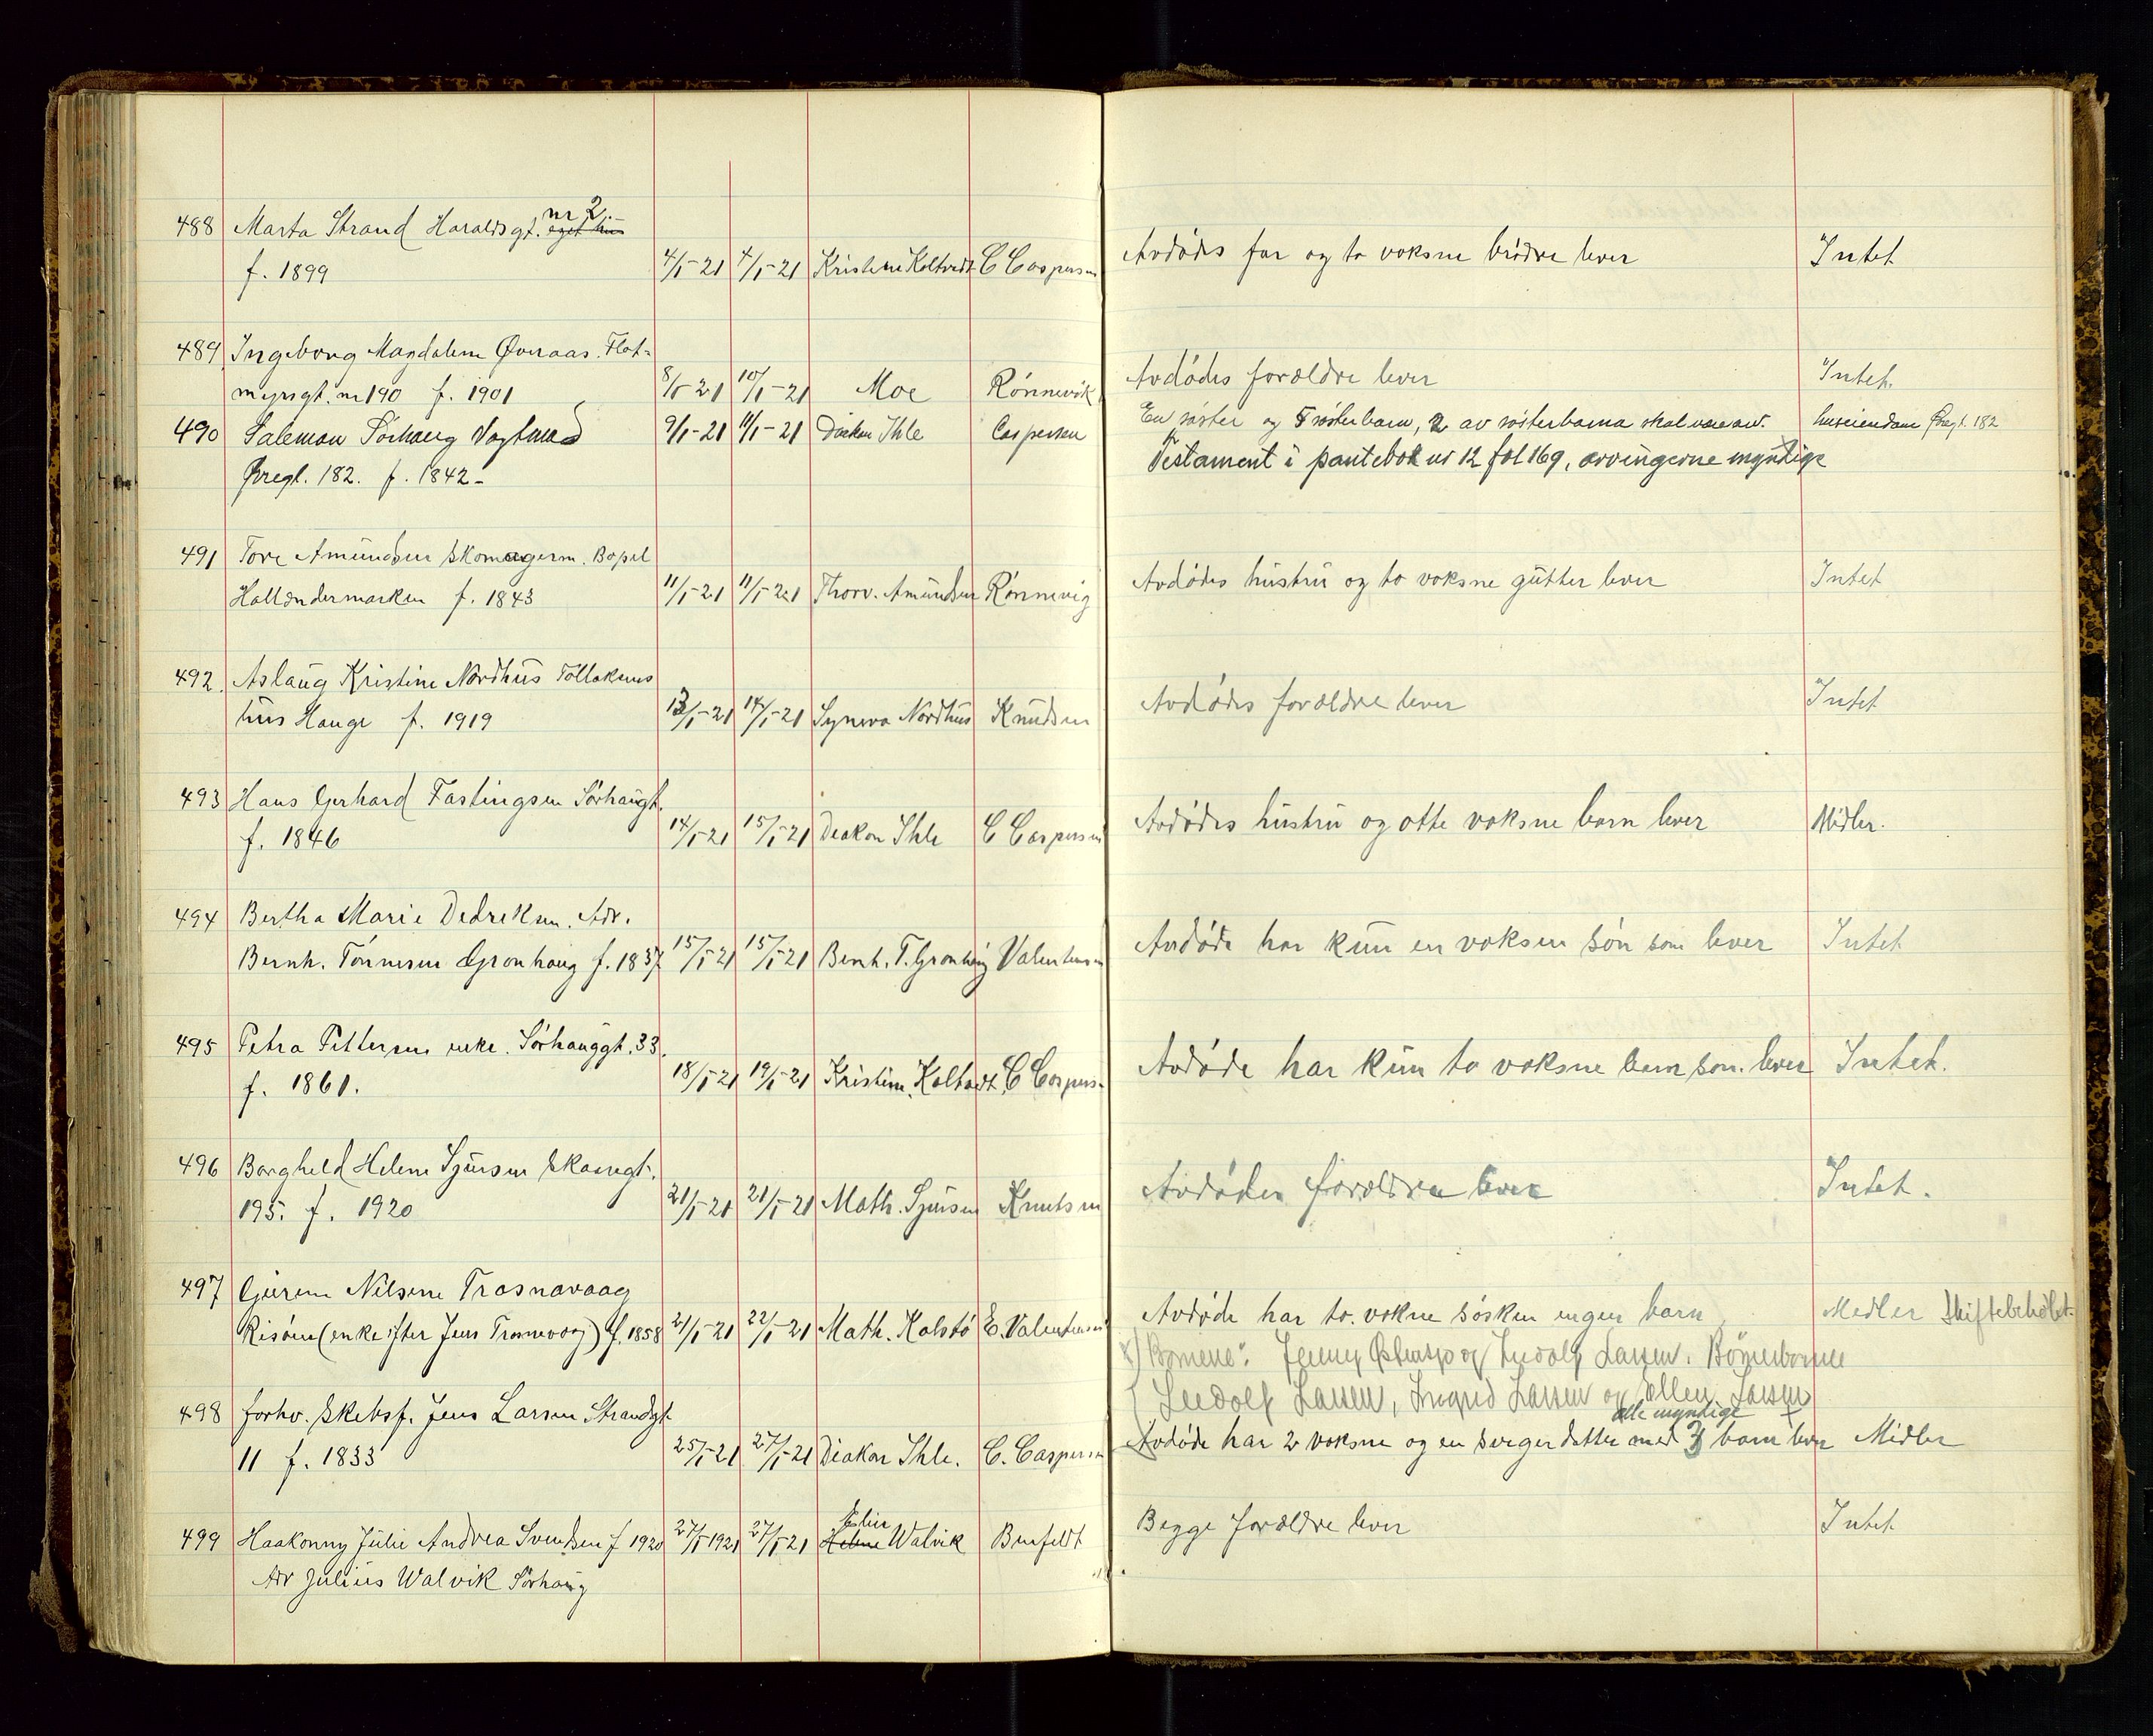 488 Marta Strand Haraldsgt. nr 2. eget hus
f. 1899 4/5-21 4/5-21 Kristine Koltvedt C Caspersen Avdødes far og to voksne brødre lever Intet
489 Ingeborg Magdalene Øveraas. Flot-
myrsgt. nr 190 f. 1901 8/5 21 10/5-21 Moe Rønnevik Avdødes forældre lever Intet.
490 Salemon Sørhaug Vagtmand 9/5-21 11/5-21 Diakon Ihle Caspersen En søster og 5 søsterbarn, 2 av søsterbarna skal være huseiendom Øvregt. 182
Øvregt. 182. f. 1842- Testament i pantebok nr 12 fol 169, arvingerne myndige
491 Tore Amundsen Skomagerm. Bopel
Hollendermarken f. 1843 11/5-21 11/5-21 Thorv. Amundsen Rønnevig Avdødes hustru og to voksne gutter lever Intet
492. Aslaug Kristine Nordhus
hus Hauge f. 1919 13/5-21 14/5-21 Synove Nordhus Knudsen Avdødes forældre lever Intet
493 Hans Gerhard Fastingsen Sørhaugt.
f. 1846 14/5-21 15/5-21 Deakon Ihle C Caspersen Avdødes hustru og otte voksne barn lever Midler.
494 Bertha Marie Dedreksen. Adr.
Bernh. Tønnesen Gronhaug f. 1837 15/5-21 15/5-21 Bernh. T. Gronhaug Valentinsen Avdøde har kun en voksen søn som lever Intet
495 Petra Pettersen enke. Sørhauggt. 33.
f. 1861. 18/5-21 19/5-21 Kristine Koltvedt C Caspersen Avdøde har kun to voksne barn som lever Intet.
496 Borgheld Helene Sjursen Skaregt.
195. f. 1920 21/5-21 21/5-21 Math. Sjursen Knutsen Avdødes forældre lever Intet.
497 Gurine Nilsine Trosnavaag
Risøen (enke efter Jens Trosnevaag) f. 1858 21/5-21 22/5-21 Math. Kolstø E. Valentinsen Avdøde har to voksne søsken ingen barn Medler Skiftebehdlet.
x) Barnene: Jenny og Ludolf Larsen. Børnebarnene
Ludolf Larsen, Ingrid Larsen og Ellen Larsen
498 forhv. Skibsf. Jens Larsen Strandgt. alle myndige
11 f. 1833 25/5-21 27/5-21 Diakon Ihle. C. Caspersen Avdøde har 2 voksne og en svigerdatter med 3 barn lever Midler
499 Haakonny Julie Andrea Svendsen f 1920 27/5 1921 27/5-21 Helene Walvik Benfeldt Begge forældre lever Intet
Adr Julius Walvik Sørhaug